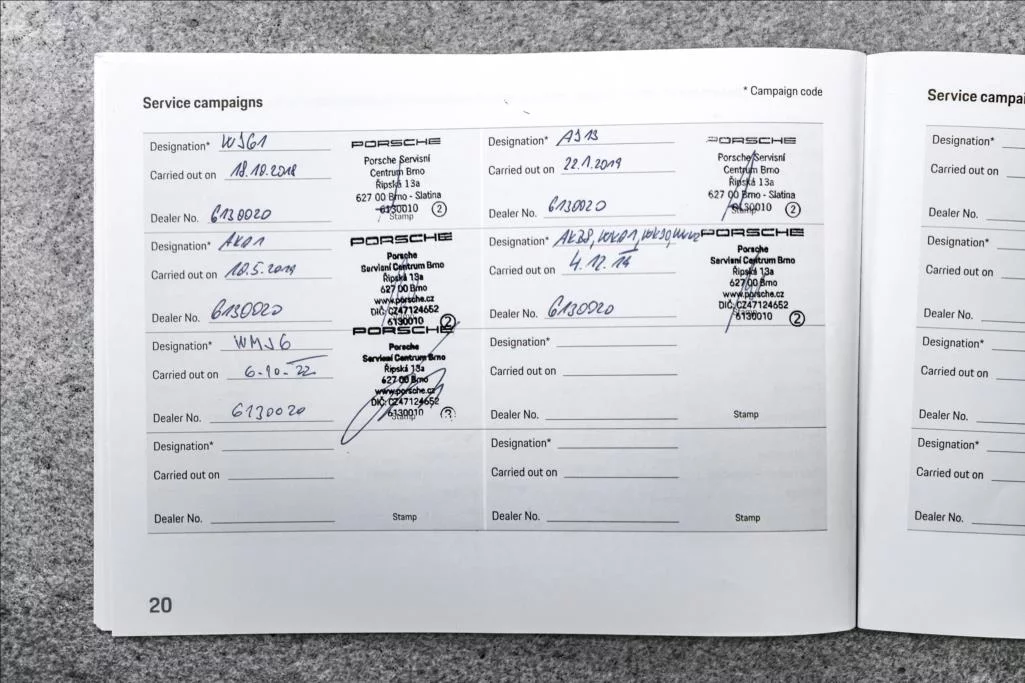 Service campaigns
* Campaign code
Designation* WJG1
Carried out on 18.10.2018
Dealer No. 6130020
PORSCHE
Porsche Servisní
Centrum Brno
Řipská 13a
627 00 Brno - Slatina
6130010 2
Stamp
Designation* AJ13
Carried out on 22.1.2019
Dealer No. 6130020
PORSCHE
Porsche Servisní
Centrum Brno
Řipská 13a
627 00 Brno - Slatina
6130010 2
Stamp
Designation* AK01
Carried out on
Dealer No. 6130020
PORSCHE
Porsche
Servisní Centrum Brno
Řipská 13a
627 00 Brno
www.porsche.cz
DIČ: CZ47124652
6130010 2
Designation* AK38, WK01, WK30,
Carried out on 4.12.
Dealer No. 6130020
PORSCHE
Porsche
Servisní Centrum Brno
Řipská 13a
627 00 Brno
www.porsche.cz
DIČ: CZ47124652
6130010 2
Designation* WMJ6
Carried out on 6-10-22
Dealer No. 6130020
PORSCHE
Porsche
Servisní Centrum Brno
Řipská 13a
627 00 Brno
www.porsche.cz
DIČ: CZ47124652
6130010 3
Stamp
Designation*
Carried out on
Dealer No.
Stamp
Designation*
Carried out on
Dealer No.
Stamp
Designation*
Carried out on
Dealer No.
Stamp
20
Service
Designation*
Carried out on
Dealer No.
Designation*
Carried out on
Dealer No.
Designation*
Carried out on
Dealer No.
Designation*
Carried out on
Dealer No.